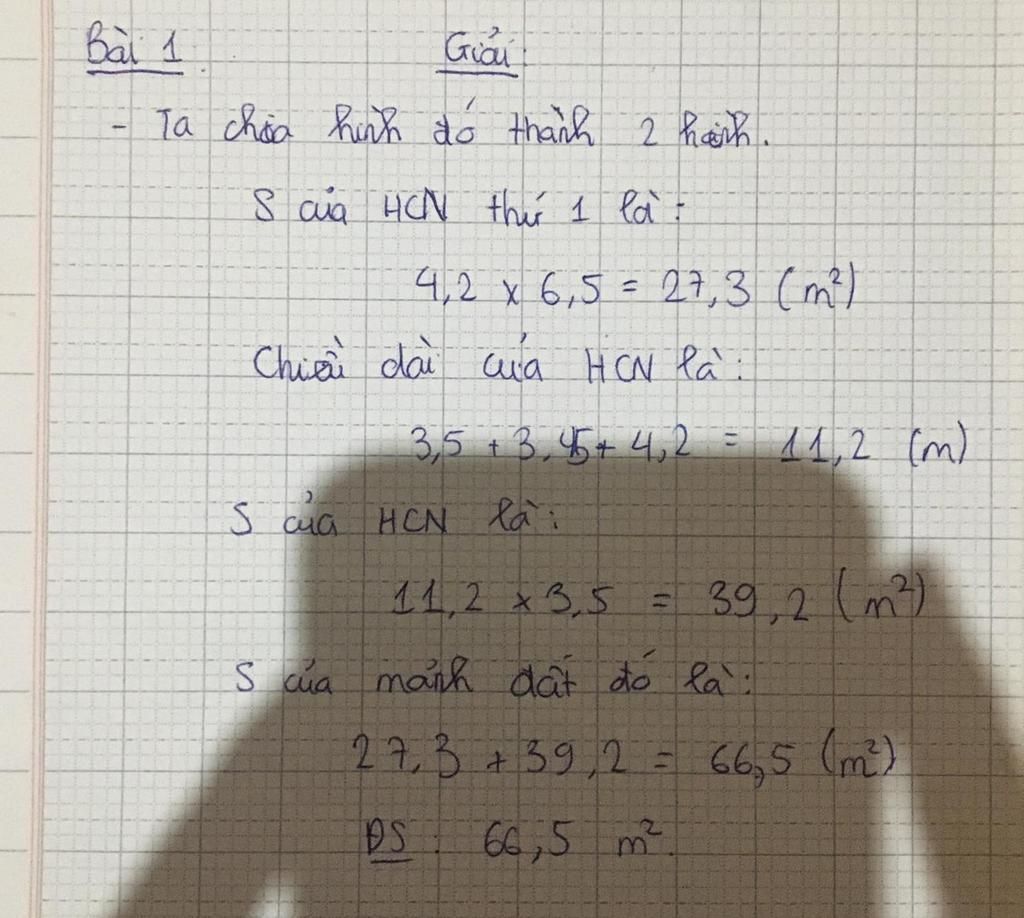 Bài 1. Giải:
- Ta chia hình đó thành 2 hình.
S của HCN thứ 1 là:
4,2 x 6,5 = 27,3 (m²)
Chiều dài của HCN là:
3,5 + + 4,2 = 11,2 (m)
S của HCN là:
11,2 x 3,5 = 39,2 (m²)
S của mảnh đất đó là:
27,3 + 39,2 = 66,5 (m²)
ĐS: 66,5 m².